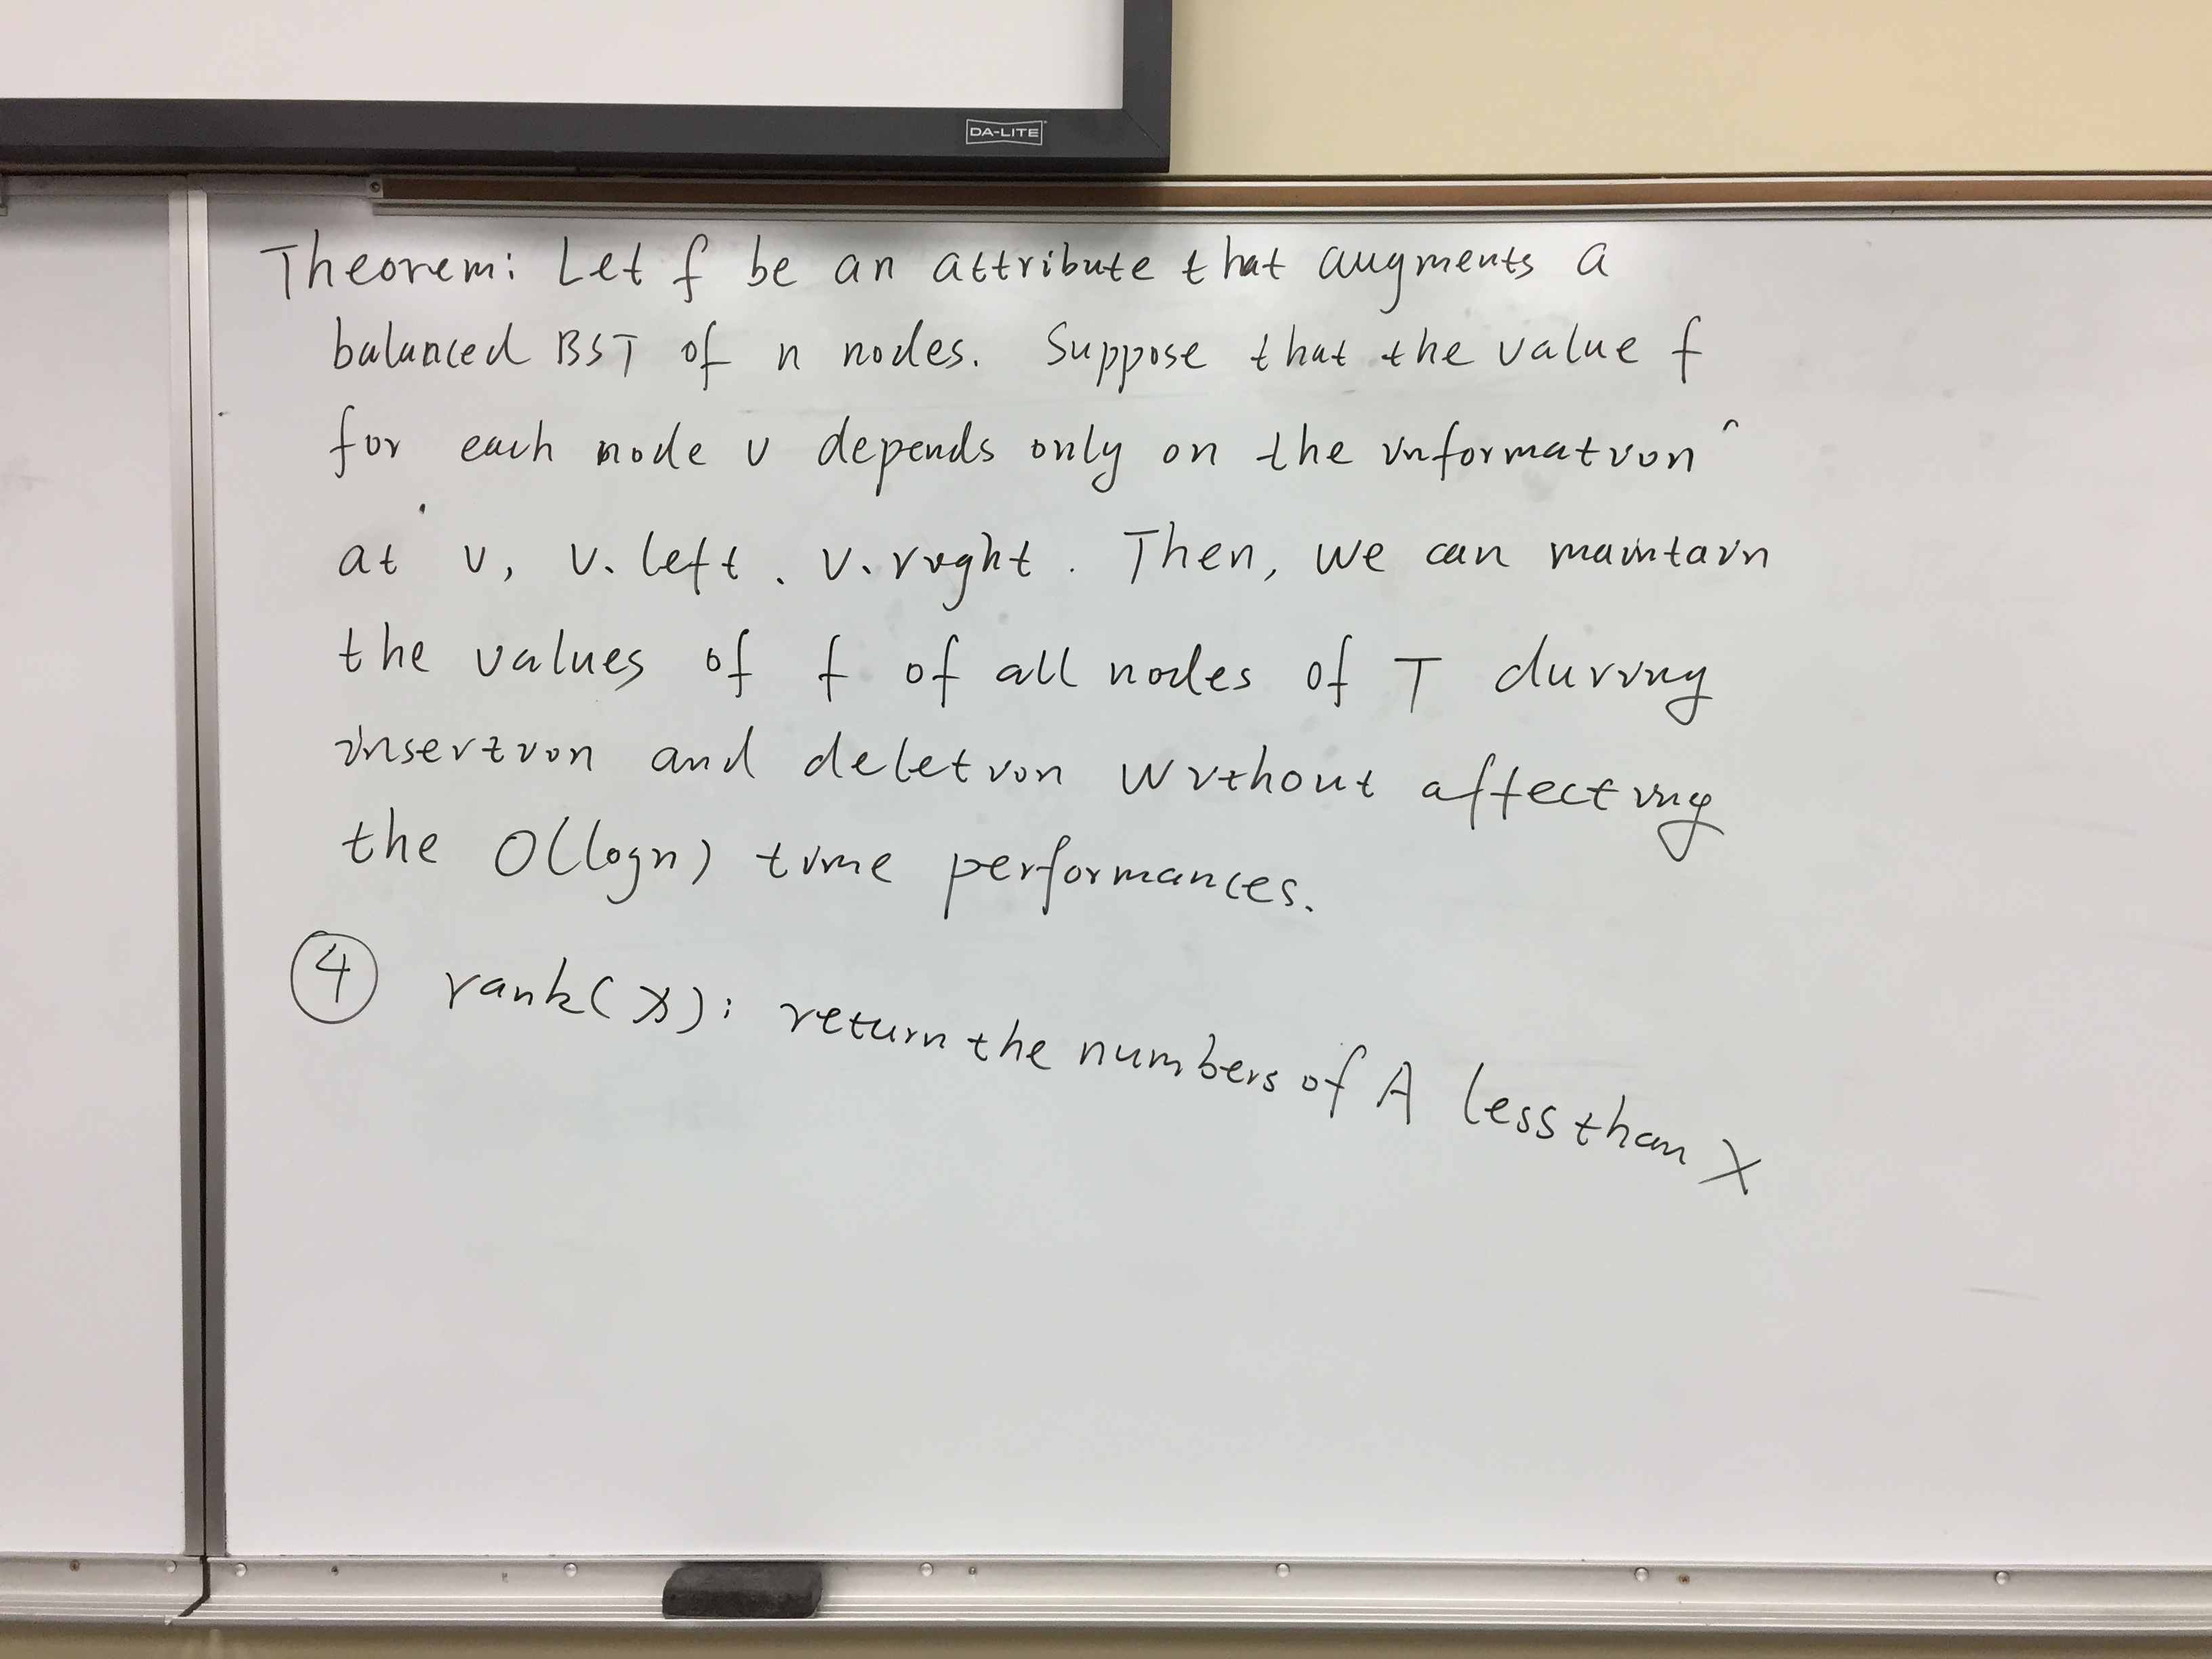 DA-LITE
Theorem: Let f be an attribute that augments a
balanced BST of n nodes. Suppose that the value f
for each node v depends only on the information
at v, v.left, v.right. Then, we can maintain
the values of f of all nodes of T during
insertion and deletion without affecting
the O(logn) time performances.
④ rank(x): return the numbers of A less than X